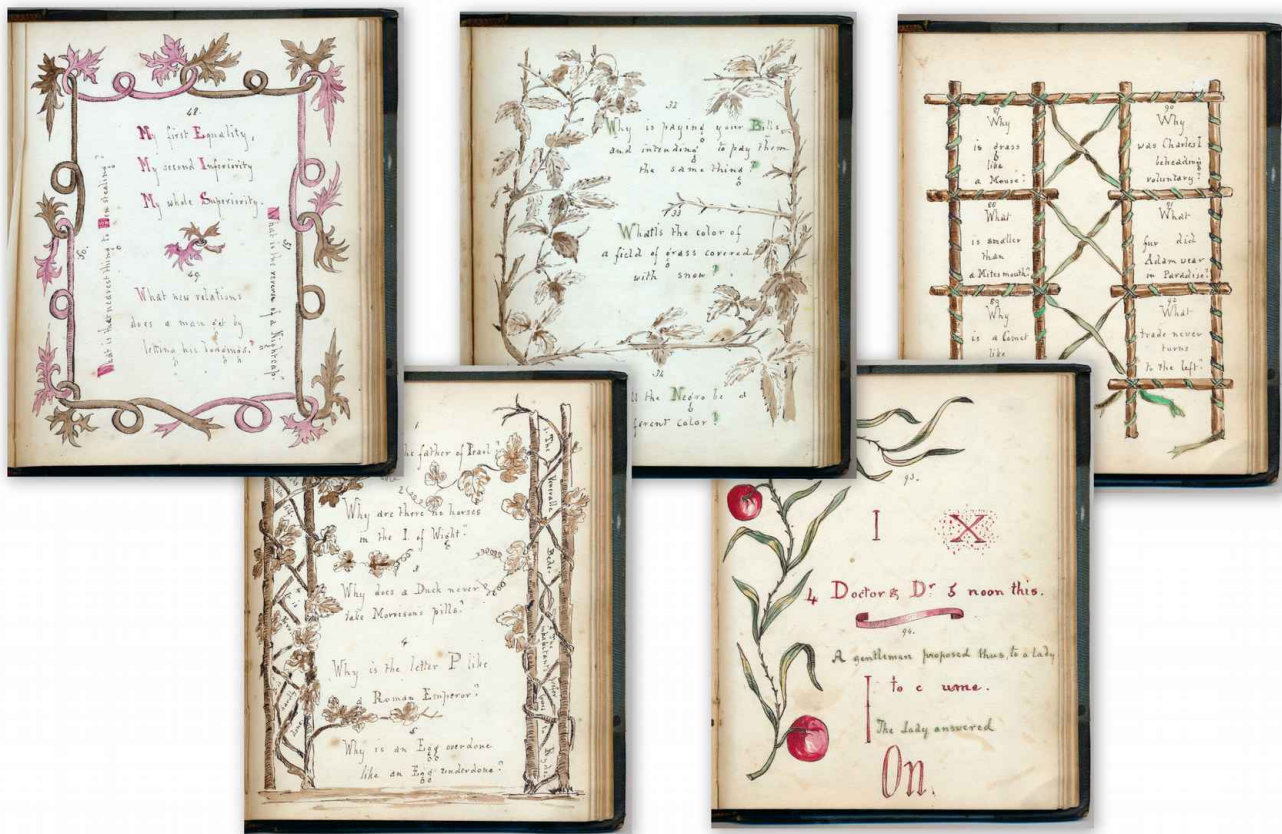 48.
My first Equality,
My second Inferiority
My whole Superiority.
49.
What new relations
does a man get by
letting his lodgings?
50.
What is the nearest thing to Hen stealing?
51
What is the reverse of a Nightcap?
32
Why is paying your Bills
and intending to pay them
the same thing?
33
What is the color of
a field of grass covered
with snow?
34
the Negro be a
ferent color?
87
Why
is grass
like
a Mouse?
88
What
is smaller
than
a Mites mouth?
89
Why
is a Comet
like
90
Why
was Charles I
beheading
voluntary?
91
What
fur did
Adam wear
in Paradise?
92
What
trade never
turns
to the left?
1
he father of Pearl?
2
Why are there no horses
in the I. of Wight?
3
Why does a Duck never
take Morrisons pills?
4
Why is the letter P like
a Roman Emperor?
5
Why is an Egg overdone
like an Egg underdone?
The Venerable Bede
The Inhabitants of
93.
I X
4 Doctor & Dr 5 noon this.
94.
A gentleman proposed thus, to a lady
I to c ume.
The lady answered
On.